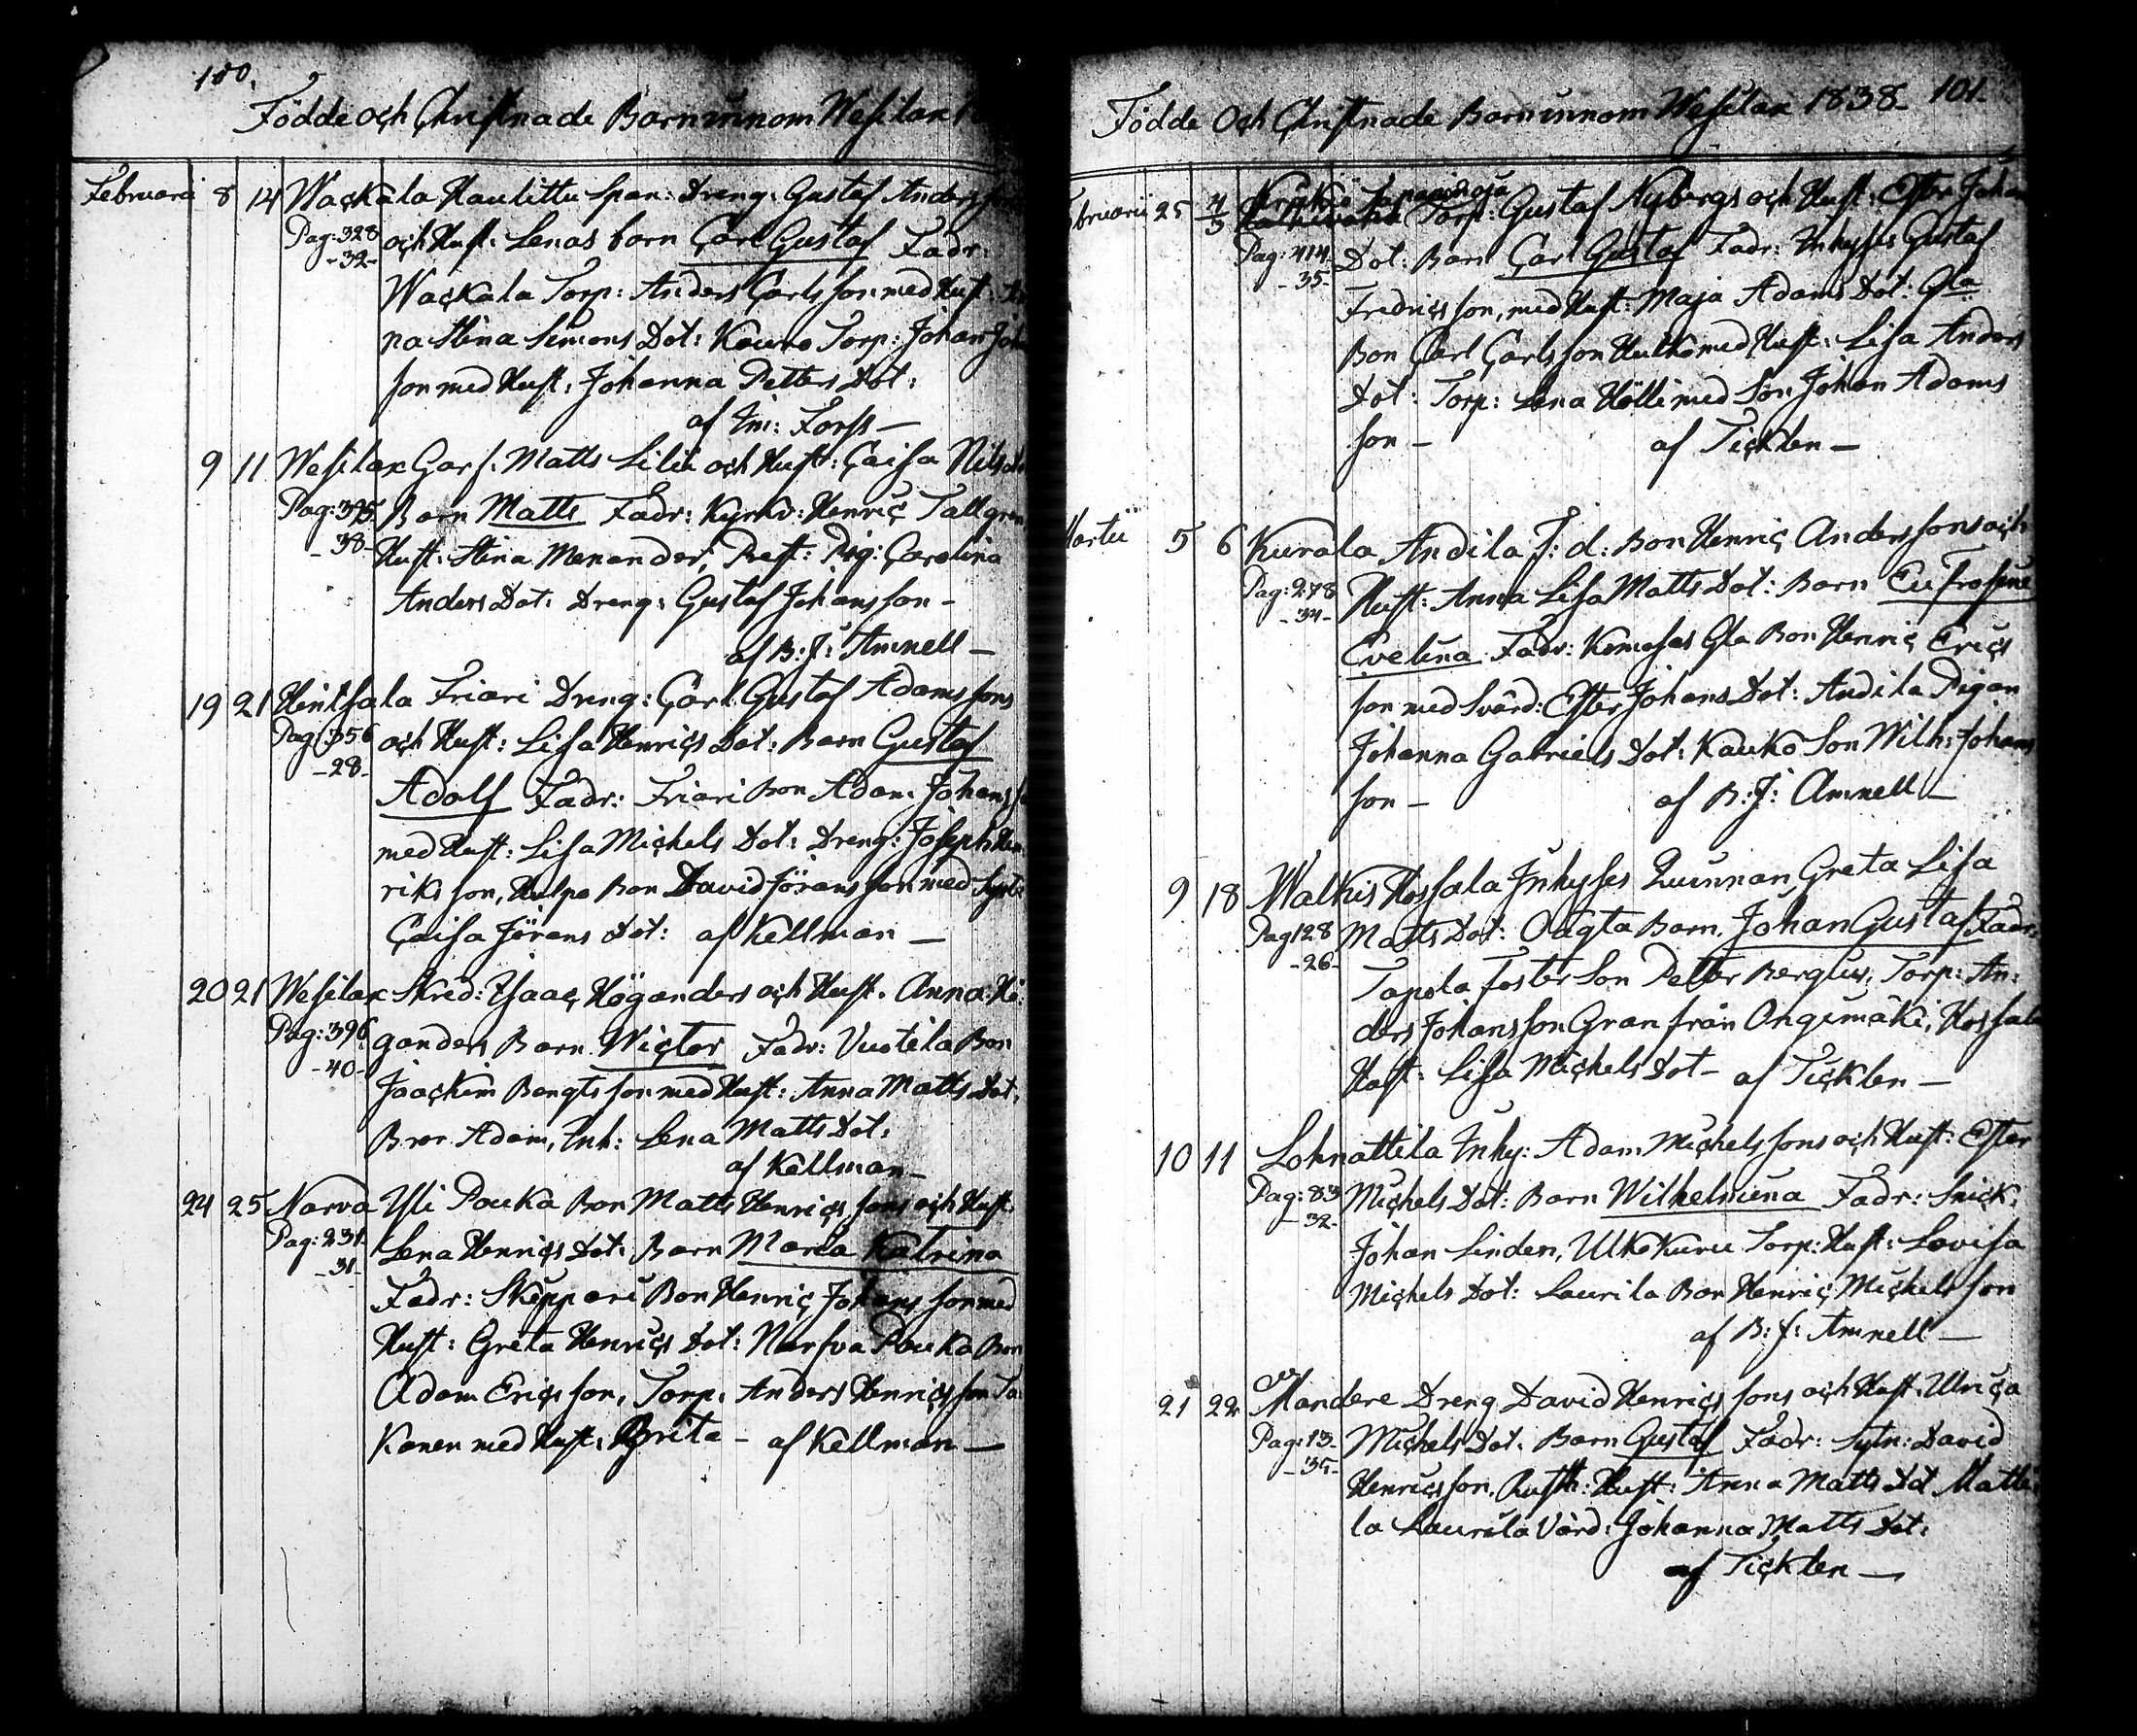 100.
Födde och Christnade Barn innom Wesilax
Februarii 8 14 Wackala Haulittu Span: Dreng: Gustaf Anders
Pag: 328 och Hust: Lenas barn Carl Gustaf Fadr:
-32- Wackala Torp: Anders Carlsson med Hust:
na Stina Simons Dot: Kouro Torp: Johan
son med Hust: Johanna Petters Dot:
af Forss —
9 11 Wesilax Garf: Matts Lilië och Hust: Caisa Nils
Pag: 395 Barn Matts Fadr: Kyrkv: Henric Tallgren
-38- Hust: Stina Menander, Prest: Pig: Carolina
Anders Dot: Dreng: Gustaf Johansson -
af B: J: Amnell —
19 21 Hinsala Friari Dreng: Carl Gustaf Adamssons
Pag: 356 och Hust: Lisa Henrics Dot: Barn Gustaf
-28- Adolf Fadr: Friari Bon Adam Johans
med Hust: Lisa Michels Dot: Dreng: Joseph Hen
riksson, Hulpo Bon David Göransson med Syst
Caisa Görans Dot: af Kellman —
20 21 Wesilax Skred: Ysaac Höganders och Hust. Anna Hö
Pag: 396 ganders Barn Wictor Fadr: Vustila Bon
-40- Joachim Bengtsson med Hust: Anna Matts Dot:
Bror Adam, Inh: Lena Matts Dot:
af Kellman —
24 25 Narva Yli Pouka Bon Matts Henricssons och Hust.
Pag: 231 Lena Henrics Dot: Barn Maria Katrina
-31- Fadr: Skippari Bon Henric Johansson med
Hust: Greta Henrics Dot: Narfva Pouka Bon
Adam Ericsson, Torp: Anders Henricsson
Konen med Hust: Brita - af Kellman —
Födde Och Christnade Barn innom Wesilax 1838 101.
bruarii 25 4/3 Torp: Gustaf Nybergs och Hust: Ester Johan
Pag: 414 Dot: Barn Carl Gustaf Fadr: Inhyses Gustaf
-35- Fredricsson, med Hust: Maja Adams Dot: Gla
Bon Carl Carlsson Huiko med Hust: Lisa Anders
Dot: Torp: Lena Hölli med Son Johan Adams
son - af Ticklen —
Martii 5 6 Kurala Andila F: d: Bon Henric Anderssons och
Pag: 278 Hust: Anna Lisa Matts Dot: Barn Eufrosine
-34- Evelina Fadr: Komoses Gla Bon Henric Erics
son med Svärd: Ester Johans Dot: Andila Pigan
Johanna Gabriels Dot: Kauko Son Wilh: Johans
son - af B: J: Amnell —
9 18 Walkis Hossala Inhyses Quinnan Greta Lisa
Pag 128 Matts Dot: Oägta Barn Johan Gustaf Fadr:
-26- Tapola Foster Son Petter Berglus, Torp: An:
ders Johansson Gran från Ongimäki, Hossala
Hust: Lisa Michels Dot - af Ticklen —
10 11 Lohnattila Inhy: Adam Michelssons och Hust: Ester
Pag: 83 Michels Dot: Barn Wilhelmina Fadr: Snick:
-32- Johan Linden, Ulkokuru Torp: Hust: Lovisa
Michels Dot: Laurila Bon Henric Michelsson
af B: J: Amnell —
21 22 Mandere Dreng David Henricssons och Hust: Ulrica
Pag: 13 Michels Dot: Barn Gustaf Fadr: Sytn: David
-35- Henricsson, Rusth: Hust: Anna Matts Dot Matti
la Laurila Värd: Johanna Matts Dot:
af Ticklen —